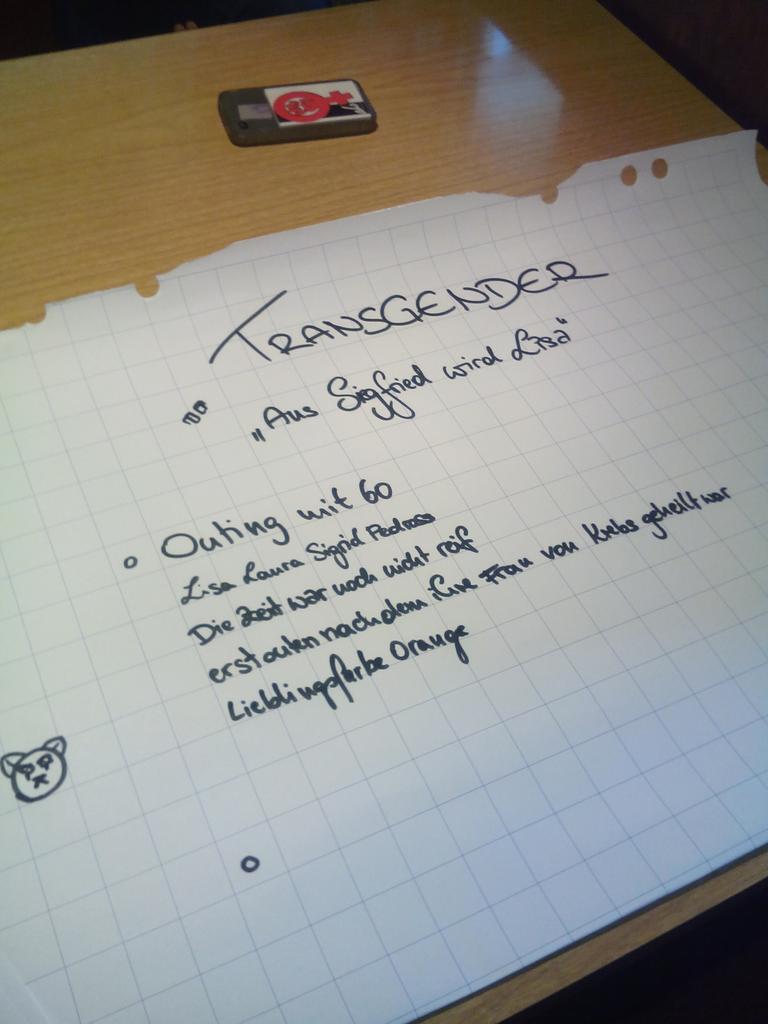 TRANSGENDER
„Aus Siegfried wird Lisa"
Outing mit 60
Lisa Laura Sigrid Pedroso
Die Zeit war noch nicht reif
erst outen nach dem ihre Frau von Krebs geheilt war
Lieblingsfarbe Orange